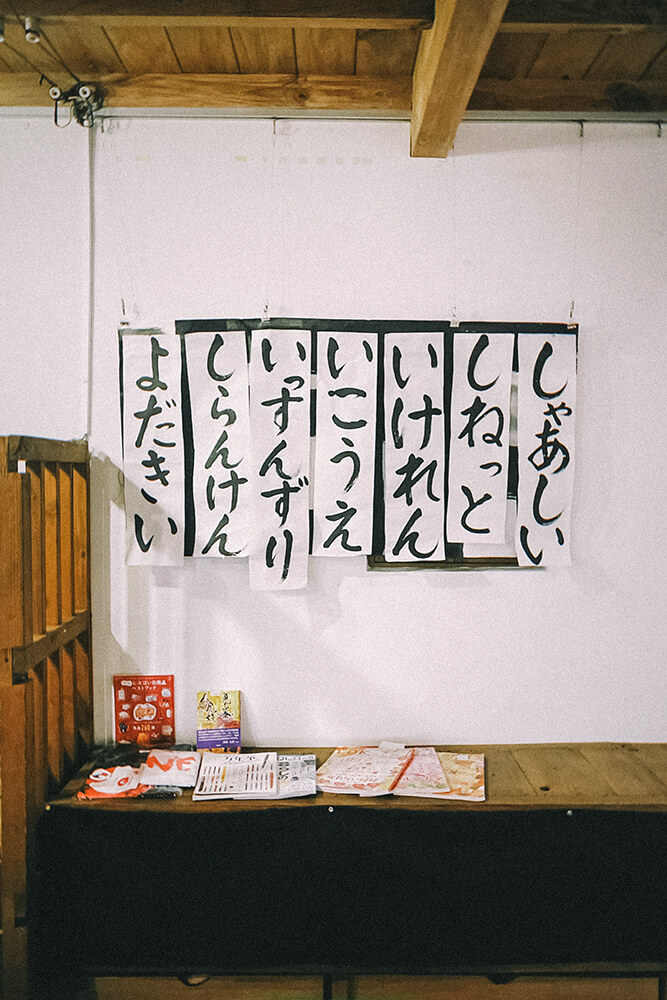 しゃあしい
しねっと
いけれん
いこうえ
いっすんずり
しらんけん
よだきい